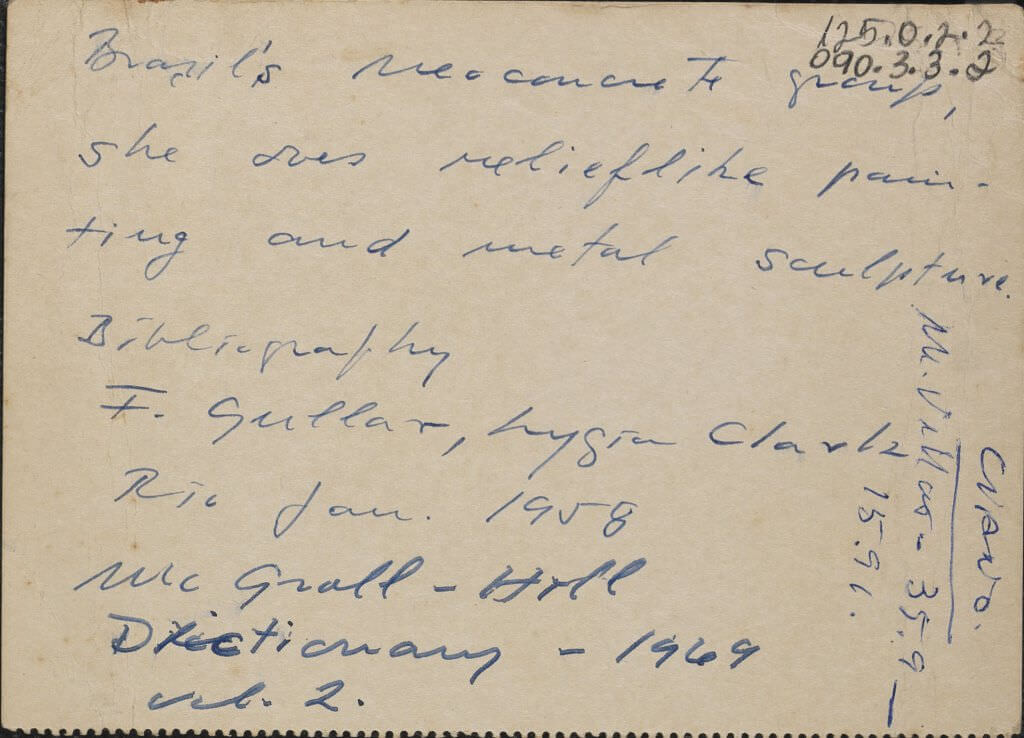 125.0.2.2
090.3.3.2
Brazil's neoconcret group,
she does relieflike pain-
ting and metal sculpture.
Bibliography
F. Gullar, Lygia Clark
Rio Jan. 1958
Mc Groll - Hill
Dictionary - 1969
vol. 2.
M. Villas - 35.9
15.91.